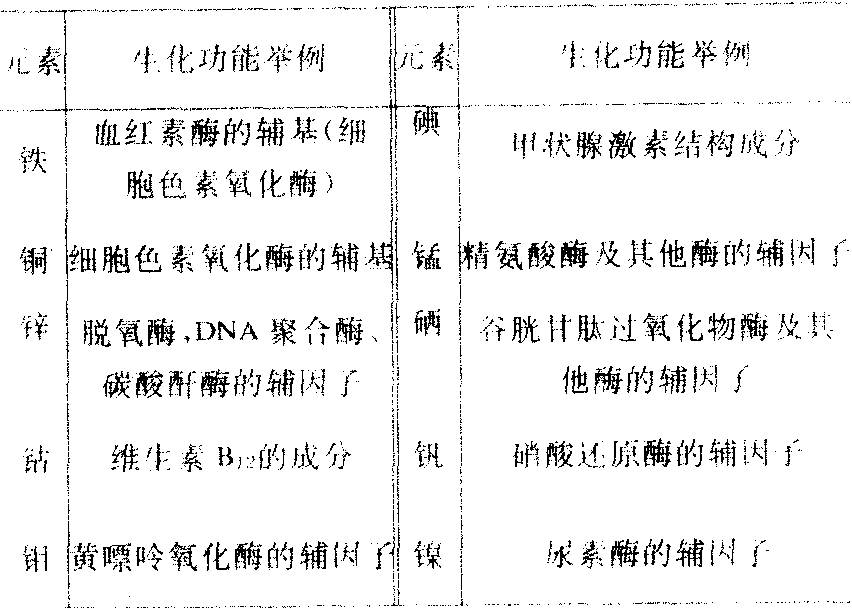 元素 生化功能举例 元素 生化功能举例
铁 血红素酶的辅基(细胞色素氧化酶) 碘 甲状腺激素结构成分
铜 细胞色素氧化酶的辅基 锰 精氨酸酶及其他酶的辅因子
锌 脱氧酶,DNA 聚合酶、碳酸酐酶的辅因子 硒 谷胱甘肽过氧化物酶及其他酶的辅因子
钴 维生素 B₁₂的成分 钒 硝酸还原酶的辅因子
钼 黄嘌呤氧化酶的辅因子 镍 尿素酶的辅因子